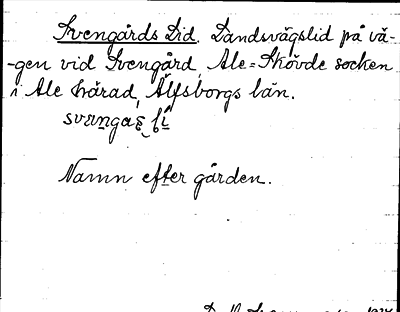 Svengårds Lid. Landsvägslid på vä-
-gen vid Svengård, Ale=Skövde socken
i Ale härad, Älfsborgs län.
Namn efter gården.